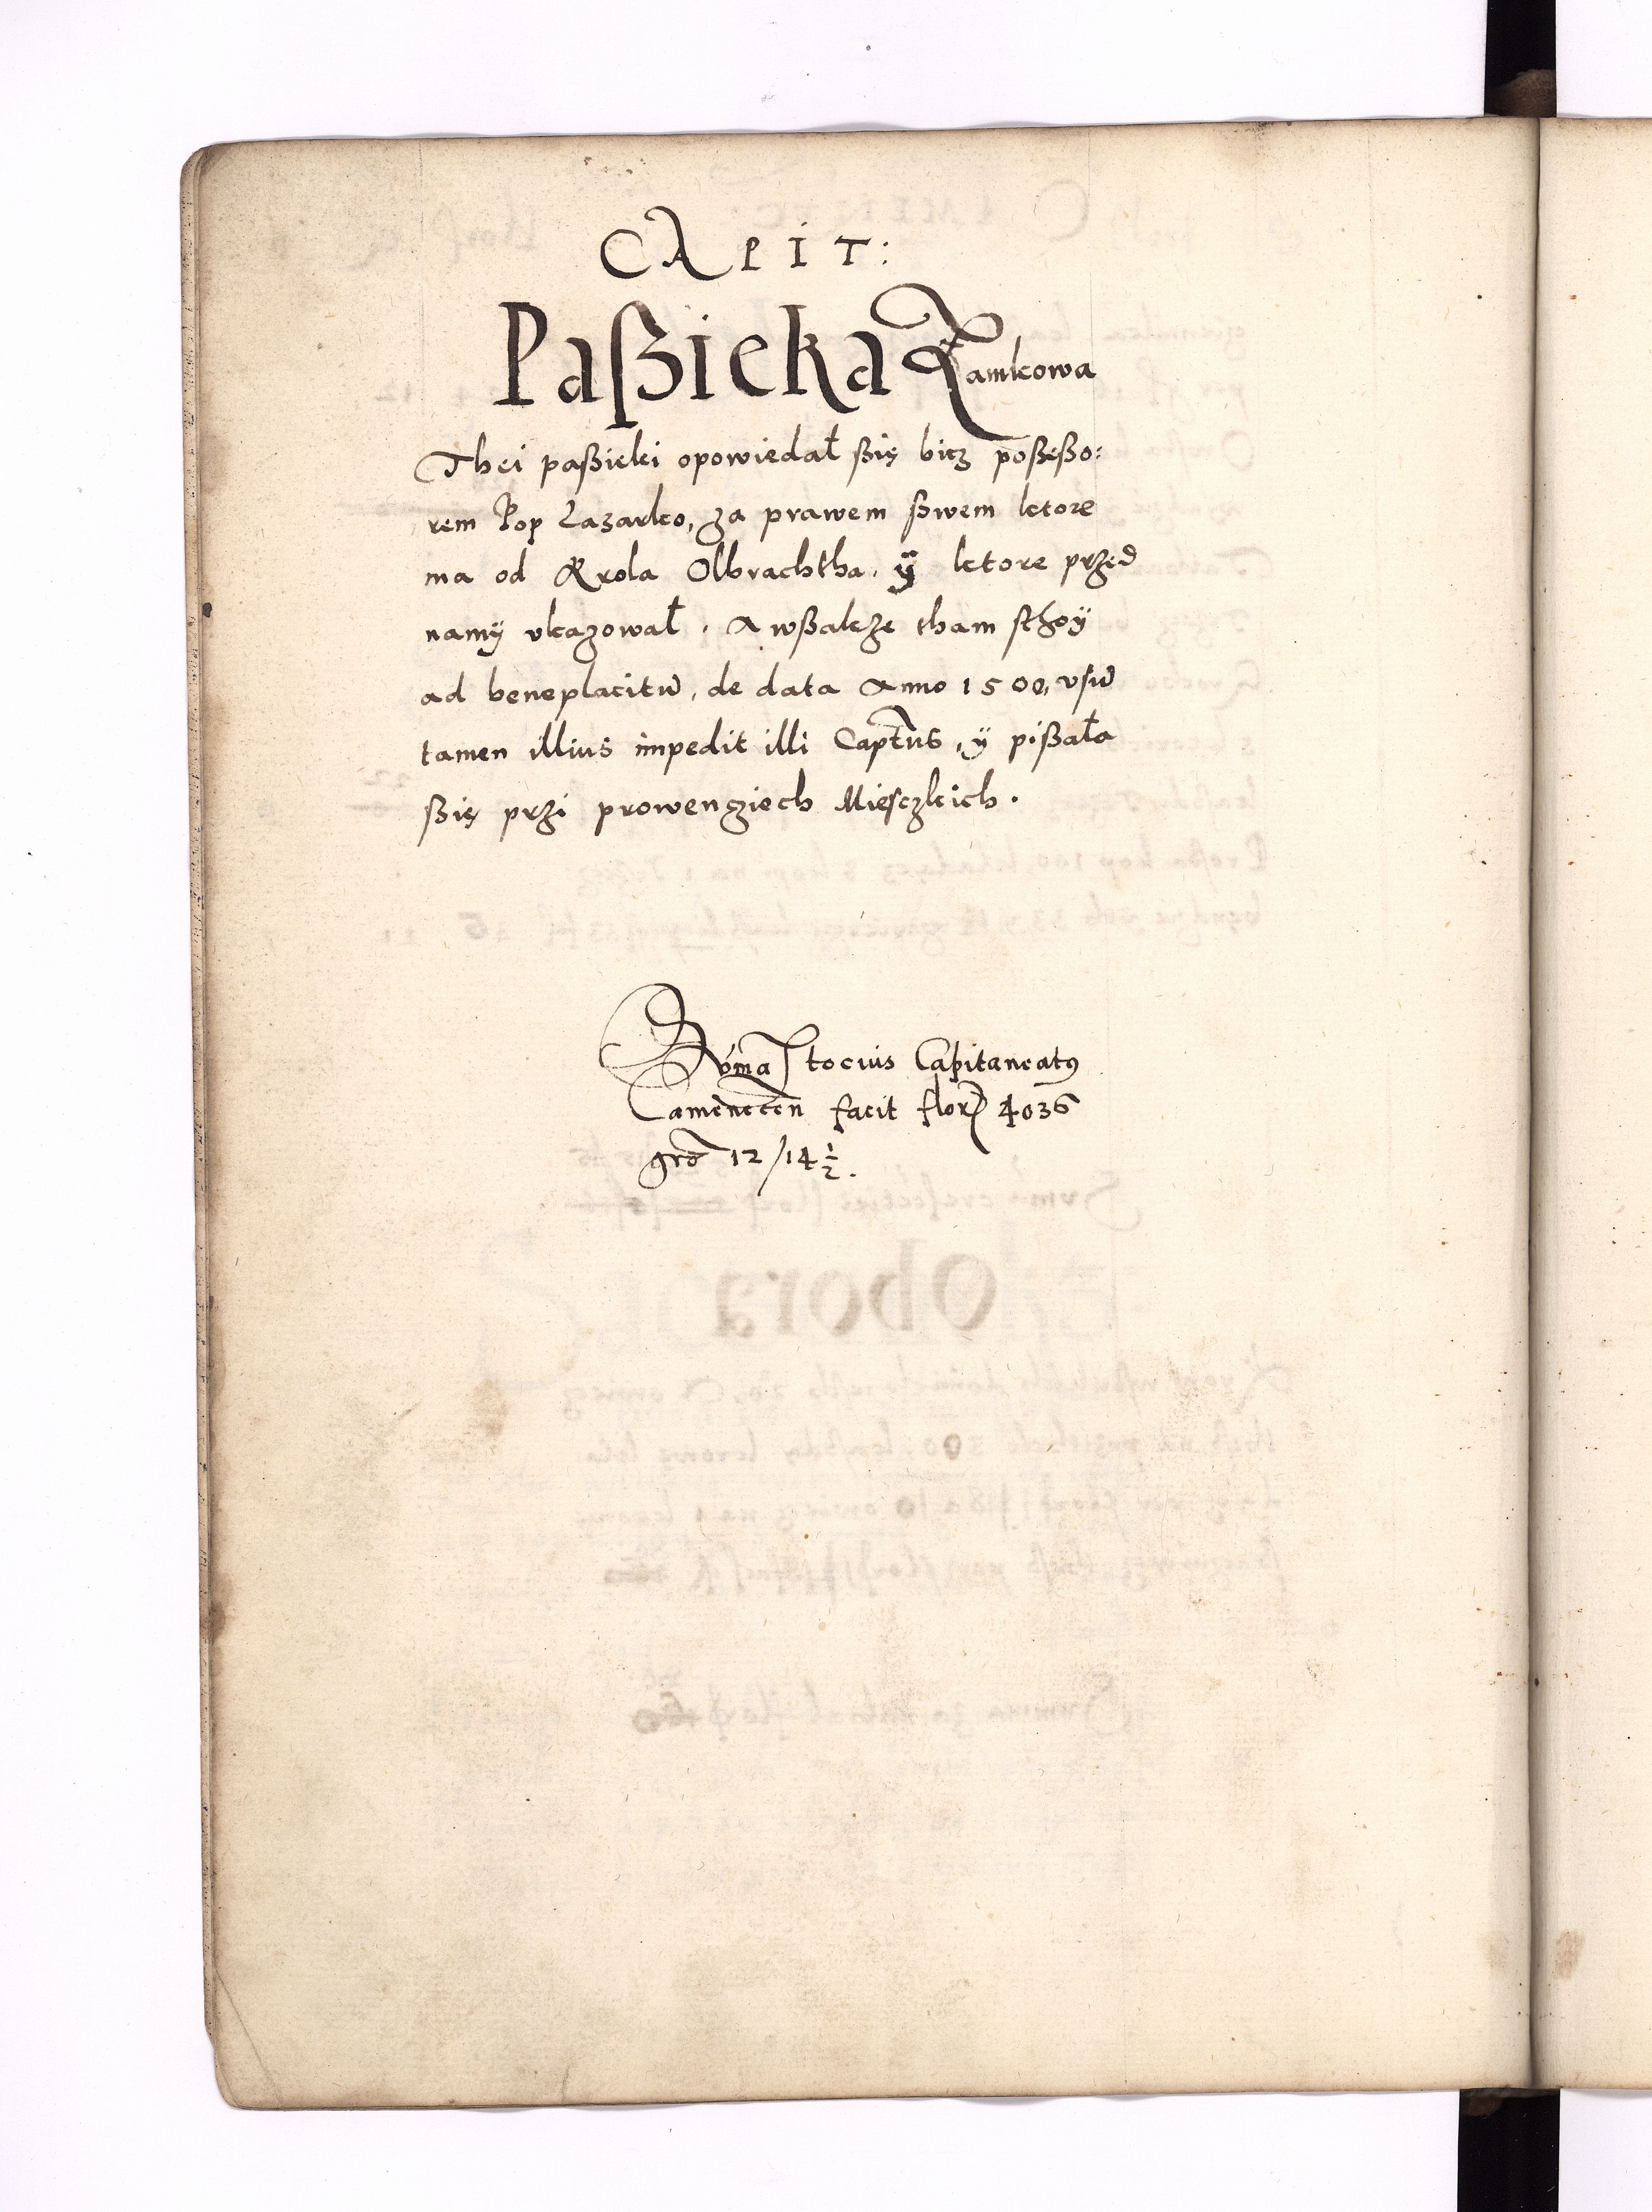 CAPIT:
Paßieka Zamkowa
Thei paßieki opowiedał ßię bicz poßeßo:
rem Pop Lazarko, za prawem ßwem ktore
ma od Krola Olbrachtha, ÿ ktore przed
namÿ vkazował. A wßakze tham sthoÿ
ad beneplacitũ, de data Anno 1500, vsũ
tamen illius impedit illi Captnus, ÿ pißała
ßię przi prowenziech Miesczkich.
Suma tocius Capitaneatus
Camenecen facit flor 4036
gro 12/14 1/2.